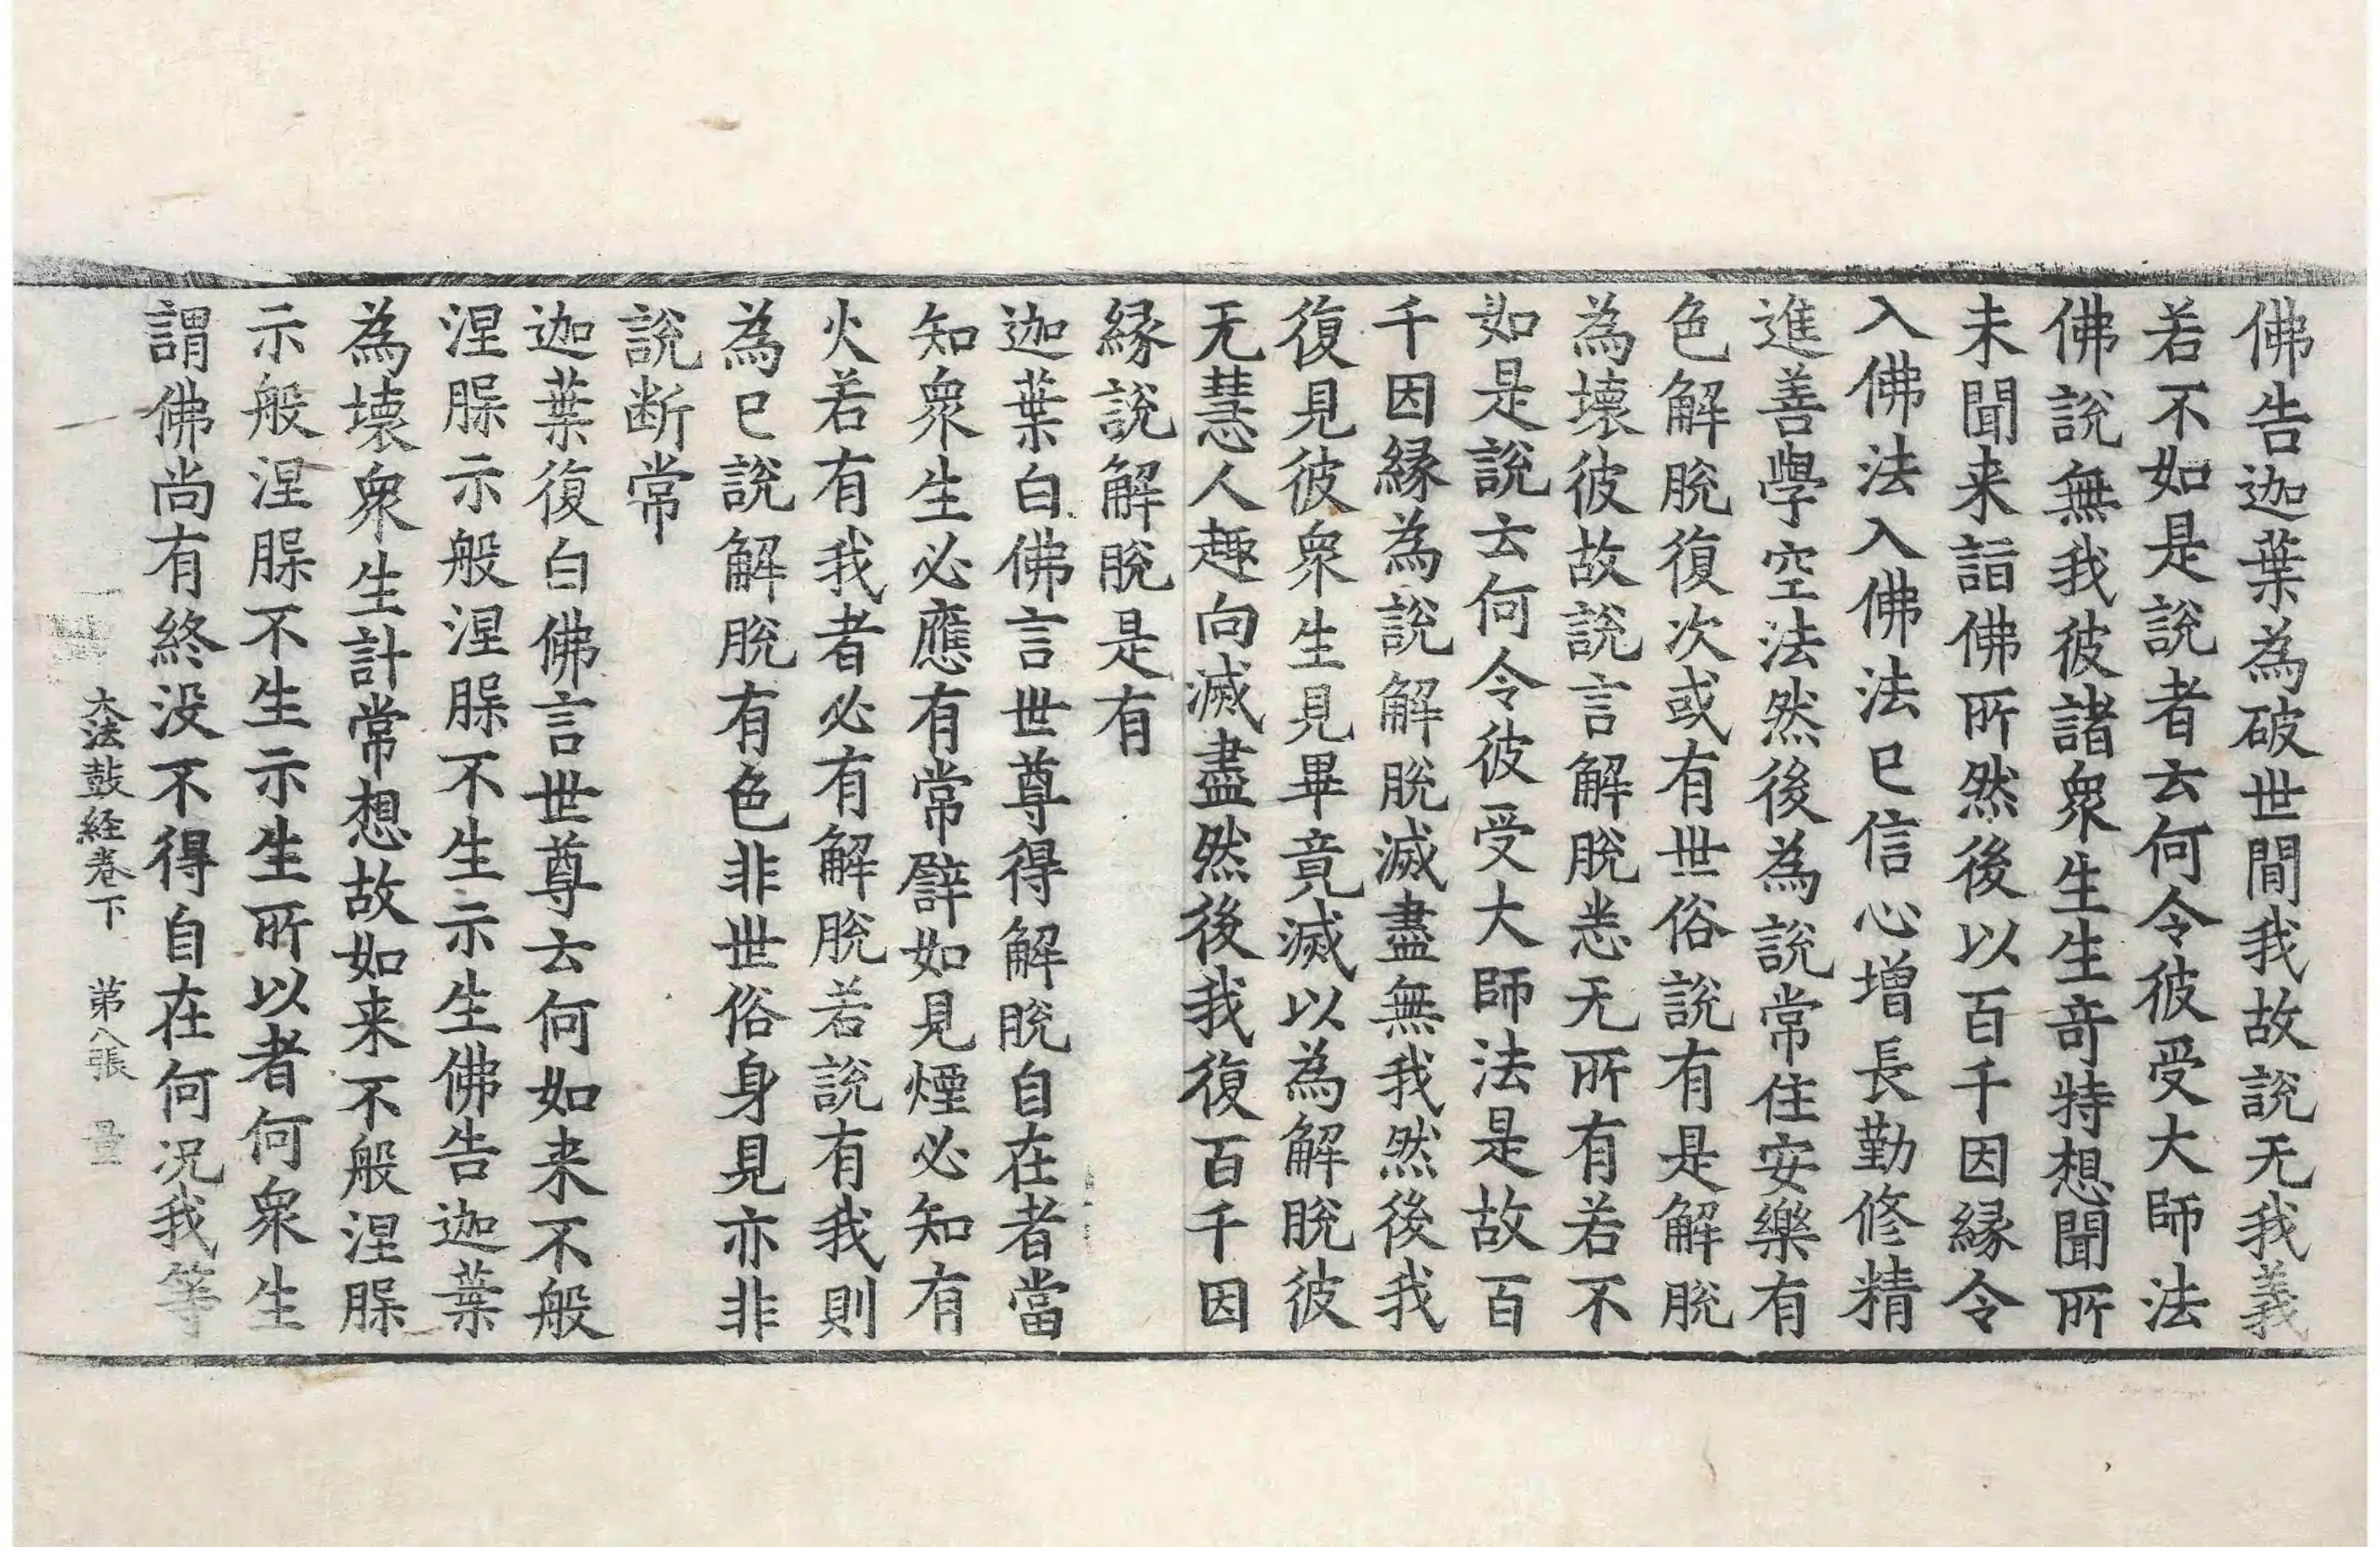 佛告迦葉為破世間我故說无我義
若不如是說者云何令彼受大師法
佛說無我彼諸衆生生奇特想聞所
未聞来詣佛所然後以百千因緣令
入佛法入佛法已信心增長勤修精
進善學空法然後為說常住安樂有
色解脫復次或有世俗說有是解脫
為壞彼故說言解脫悉无所有若不
如是說云何令彼受大師法是故百
千因緣為說解脫滅盡無我然後我
復見彼衆生見畢竟滅以為解脫彼
无慧人趣向滅盡然後我復百千因
緣說解脫是有
迦葉白佛言世尊得解脫自在者當
知衆生必應有常譬如見煙必知有
火若有我者必有解脫若說有我則
為已說解脫有色非世俗身見亦非
說断常
迦葉復白佛言世尊云何如来不般
涅槃示般涅槃不生示生佛告迦葉
為壞衆生計常想故如来不般涅槃
示般涅槃不生示生所以者何衆生
謂佛尚有終没不得自在何況我等
大法鼓経卷下 第八張 量